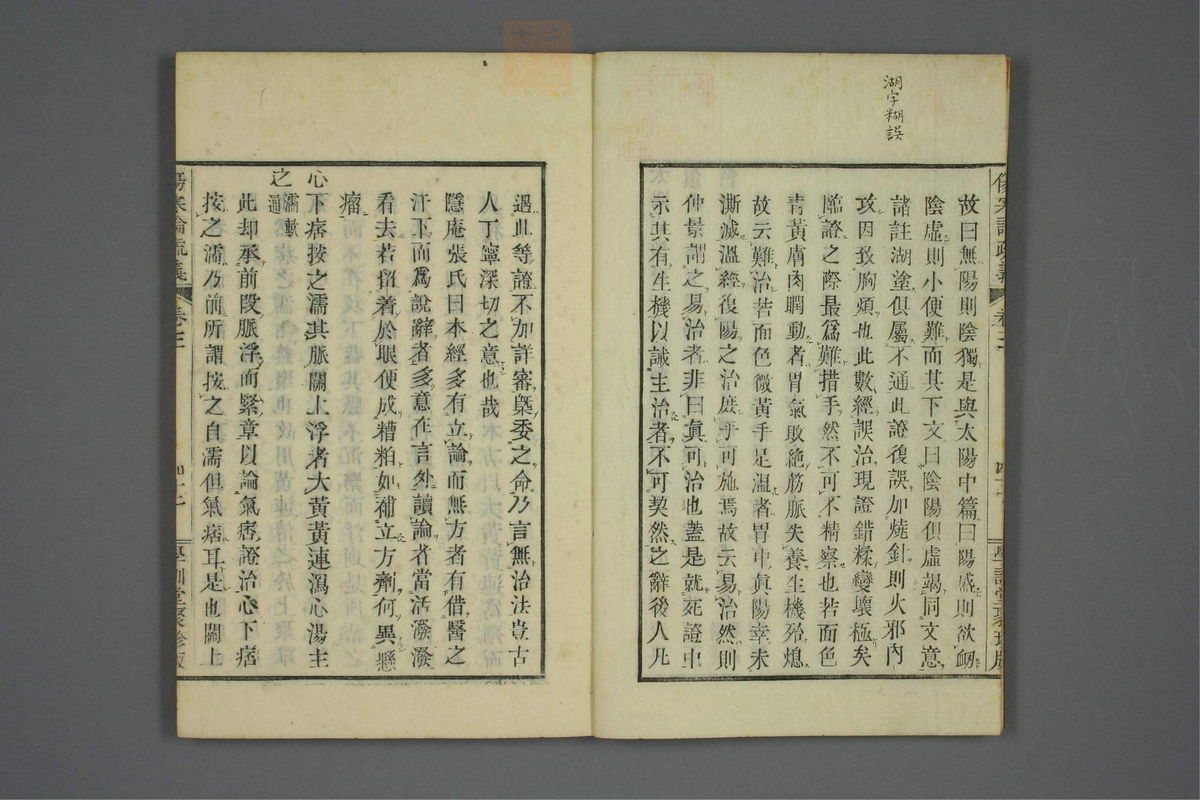 湖字糊誤
故曰無陽則陰獨是與太陽中篇曰陽盛則欲衂
陰虛則小便難而其下文曰陰陽俱虛竭同文意
諸註湖塗俱屬不通此證復誤加燒針則火邪內
攻因致胸煩也此數經誤治現證錯糅變壞極矣
臨證之際最爲難措手然不可不精察也若面色
靑黃膚肉瞤動者胃氣敗絶筋脈失養生機殆熄
故云難治若面色微黃手足溫者胃中眞陽幸未
澌滅溫經復陽之治庶乎可施焉故云易治然則
仲景謂之易治者非曰眞可治也蓋是就死證中
示其有生機以誠主治者不可契然之辭後人凡
遇此等證不加詳審槩委之命乃言無治法豈古
人丁寧深切之意也哉
隱庵張氏曰本經多有立論而無方者有借醫之
汗下而爲說辭者多意在言外讀論者當活潑潑
看去若留着於眼便成糟粕如補立方劑何異懸
瘤
心下痞按之濡其脈關上浮者大黃黃連瀉心湯主
之 濡輭通
此却承前段脈浮而緊章以論氣痞證治心下痞
按之濡乃前所謂按之自濡但氣痞耳是也關上
卷三